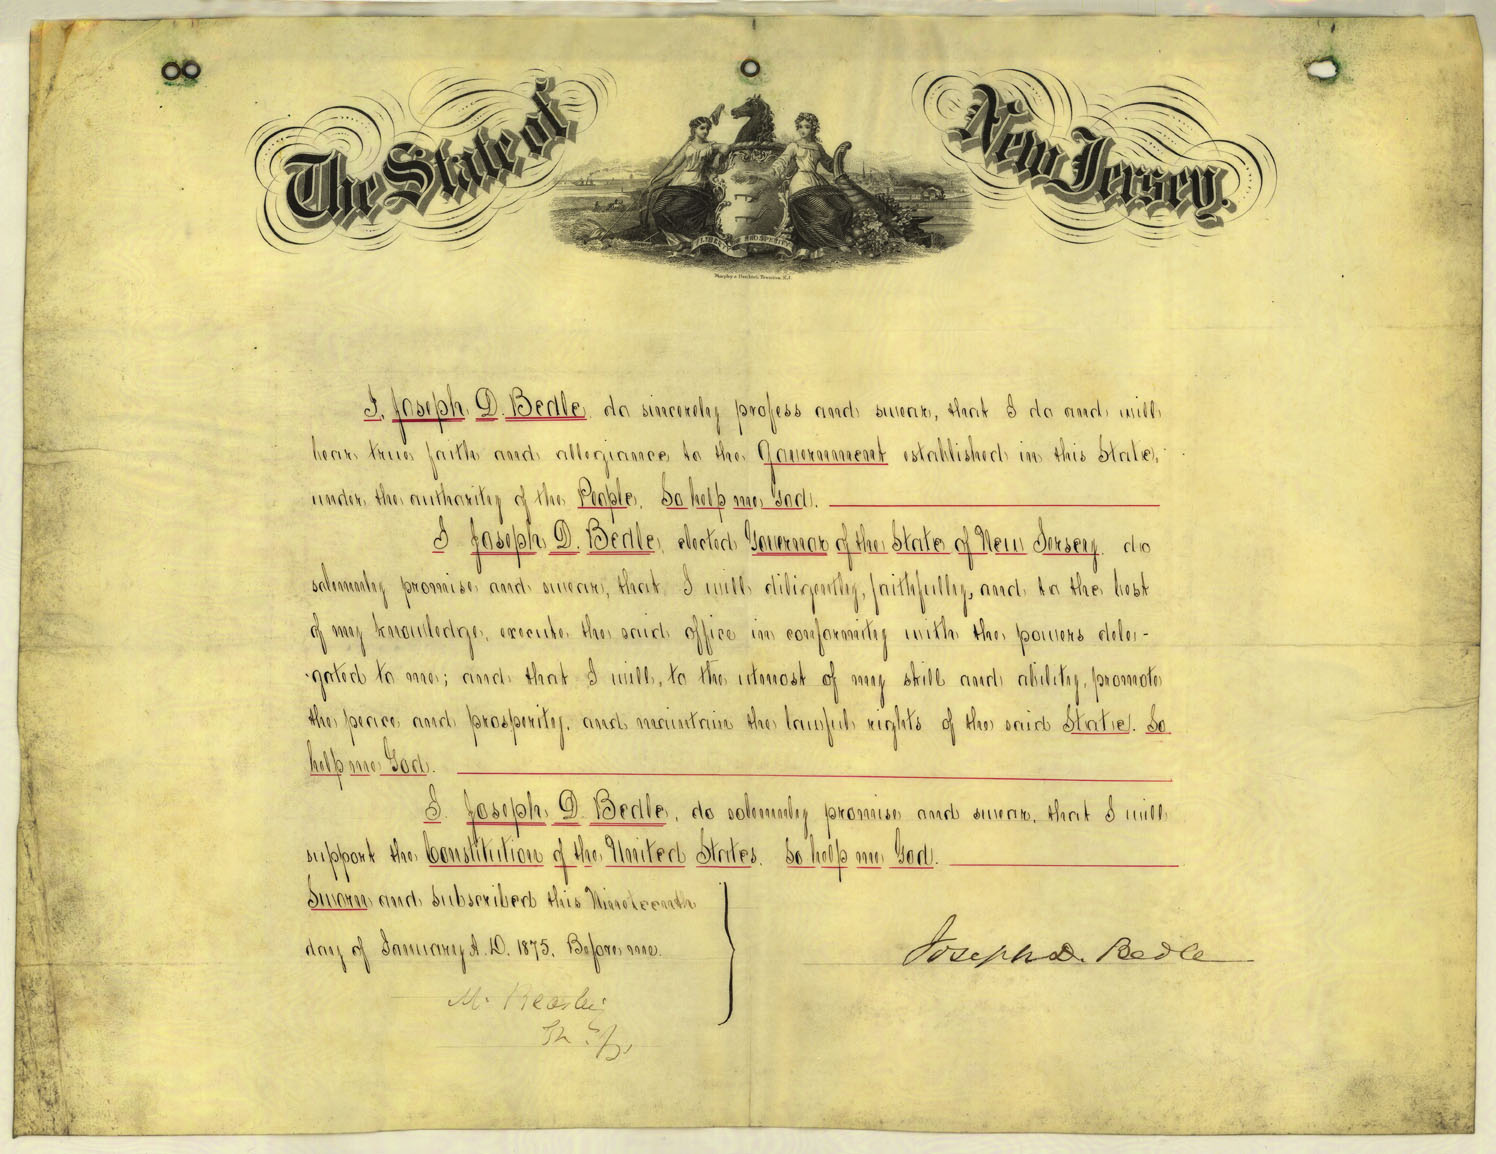 The State of New Jersey.
LIBERTY & PROSPERITY
I, Joseph D. Bedle, do sincerely profess and swear, that I do and will
bear true faith and allegiance to the Government established in this State,
under the authority of the People. So help me God.
I Joseph D. Bedle, elected Governor of the State of New Jersey, do
solemnly promise and swear, that I will diligently, faithfully, and to the best
of my knowledge, execute the said office in conformity with the powers dele-
gated to me; and that I will, to the utmost of my skill and ability, promote
the peace and prosperity, and maintain the lawful rights of the said State. So
help me God.
I. Joseph D. Bedle, do solemnly promise and swear, that I will
support the Constitution of the United States. So help me God.
Sworn and subscribed this Nineteenth
day of January A. D. 1875. Before me.
Joseph D. Bedle
M. Beasley